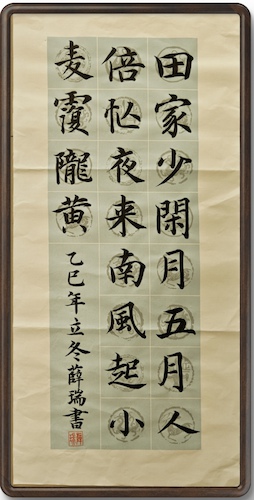 田家少閑月五月人
倍忙夜来南風起小
麦覆隴黄
乙巳年立冬薛瑞書